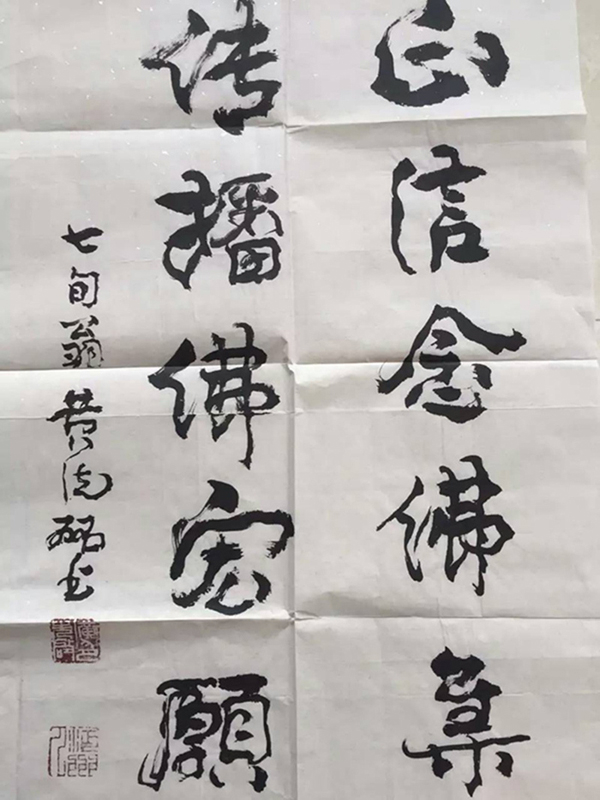 正信念佛集
传播佛宏願
七旬翁黄书